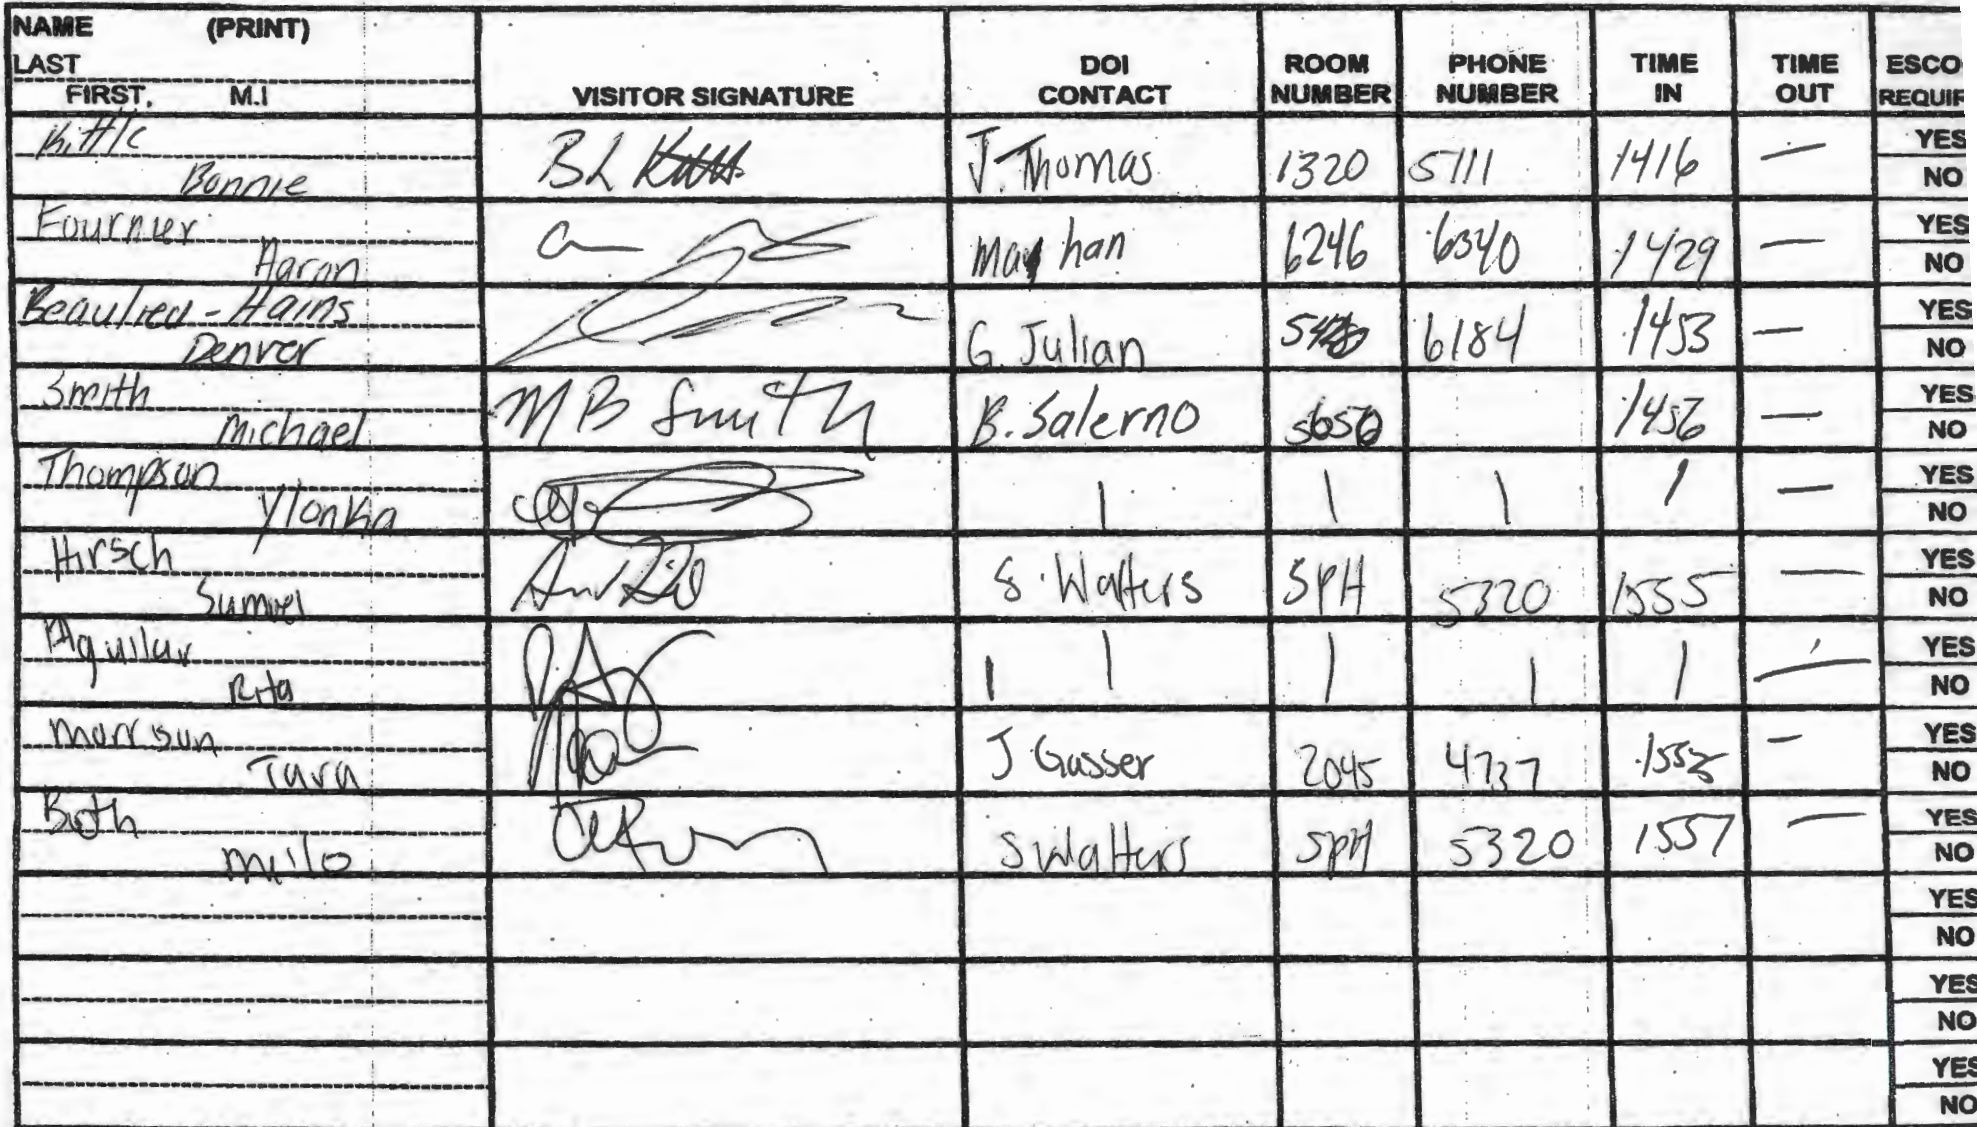 NAME (PRINT)
LAST
FIRST, M.I
VISITOR SIGNATURE
DOI CONTACT
ROOM NUMBER
PHONE NUMBER
TIME IN
TIME OUT
ESCO
REQUIR
Kittle
Bonnie
BL
J. Thomas 1320 5111 1416 —
YES
NO
Fournier
Aaron
han 6246 6340 1429 —
YES
NO
Beaulieu-Hains
Denver
G. Julian 6184 1453 —
YES
NO
Smith
Michael
MB Smith
B. Salerno 5650 1456 —
YES
NO
Thompson
Ylonka
| | | | —
YES
NO
Hirsch
S. Walters SPH 5320 1555 —
YES
NO
Aguilar
Rita
| | | | | —
YES
NO
Morrison
Tara
J Gasser 2045 4737 —
YES
NO
Milo
S Walters SPH 5320 1557 —
YES
NO
YES
NO
YES
NO
YES
NO